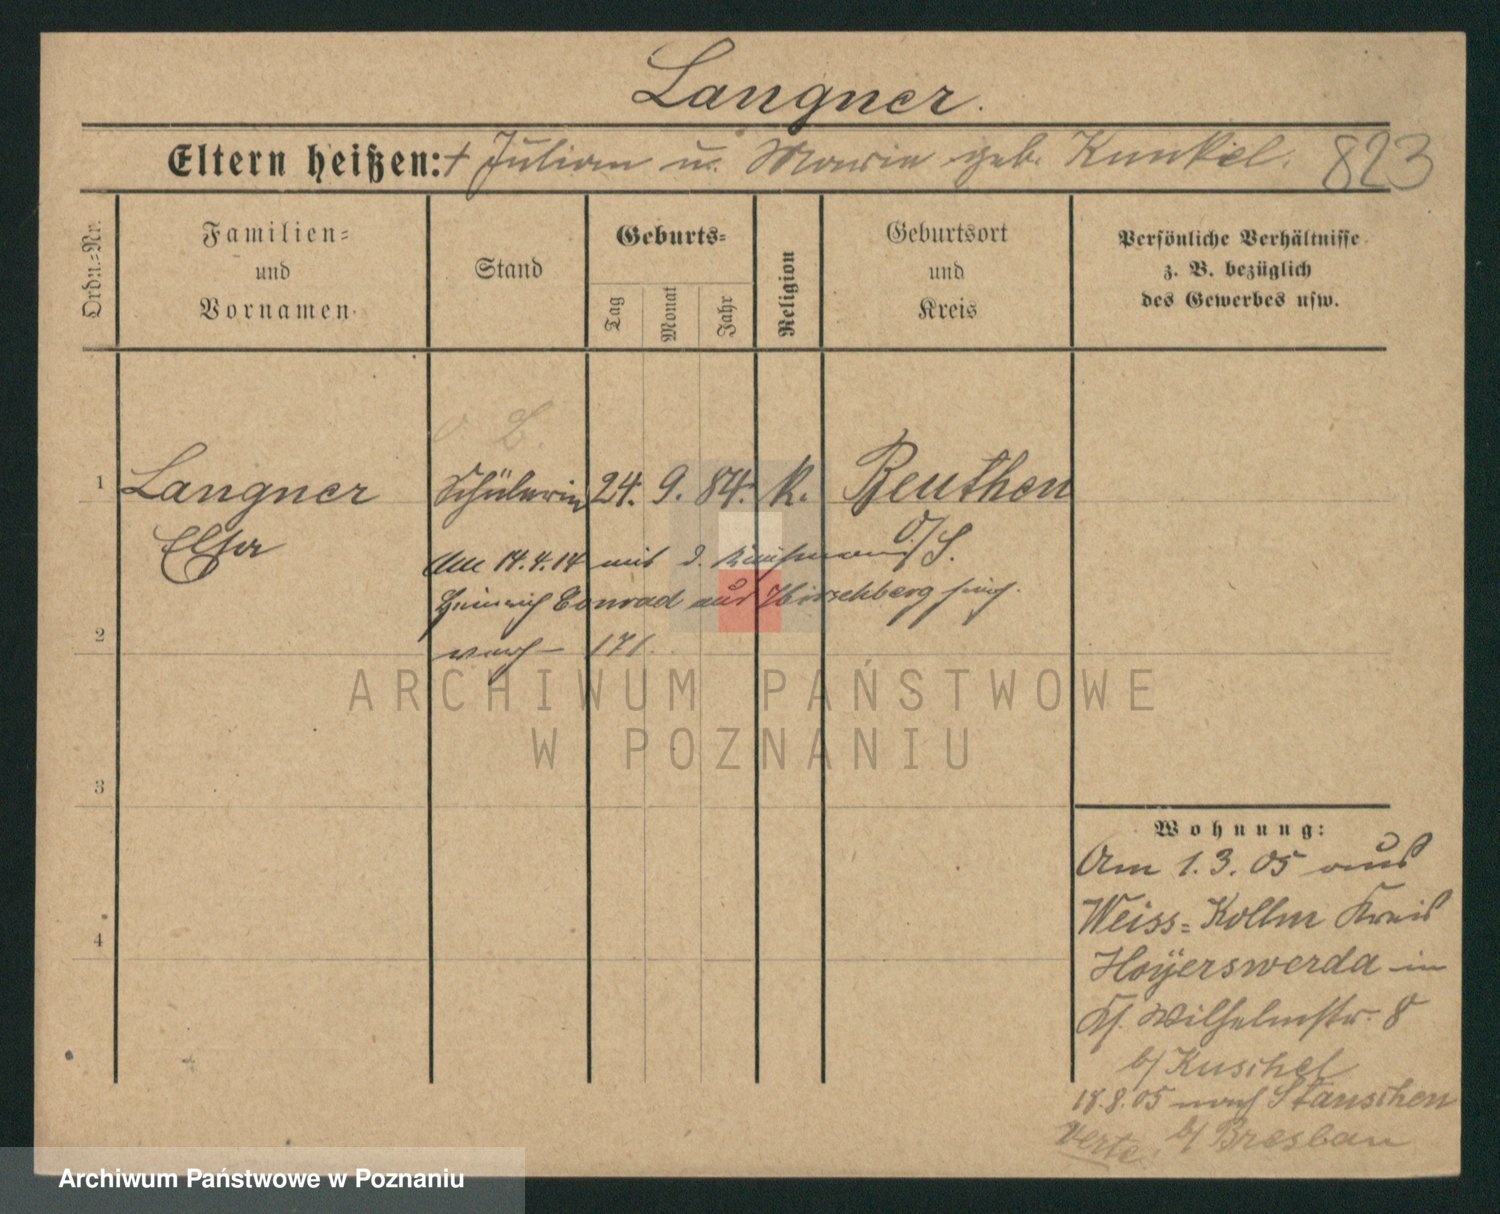 Langner.
Eltern heißen: † Julian u. Maria geb. Kunkel. 823
Ordn.-Nr.
Familien-
und
Vornamen.
Stand
Geburts-
Tag
Monat
Jahr
Religion
Geburtsort
und
Kreis
Persönliche Verhältnisse
z. B. bezüglich
des Gewerbes usw.
1 Langner Schülerin 24. 9. 84. k. Beuthen
Elsa O/S.
Am 14.4.14 mit d. Kaufmann
Heinrich Conrad aus Hirschberg
2
171.
3
4
Wohnung:
Am 1.3.05 aus
Weiss-Kollm Kreis
Hoyerswerda in
Wilhelmstr. 8
b/ Kuschel
18.8.05 nach Stanschen
Verte. b/ Breslau
ARCHIWUM PAŃSTWOWE
W POZNANIU
Archiwum Państwowe w Poznaniu